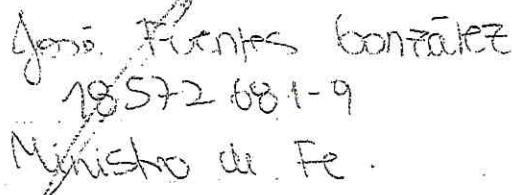 José Fuentes González
18572681-9
Ministro de Fe.